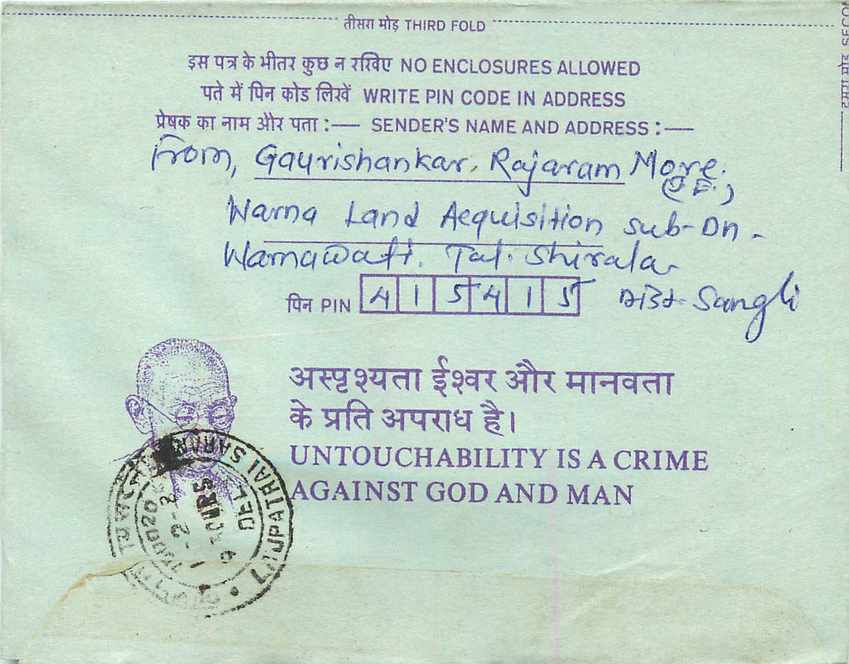 तीसरा मोड़ THIRD FOLD
इस पत्र के भीतर कुछ न रखिए NO ENCLOSURES ALLOWED
पते में पिन कोड लिखें WRITE PIN CODE IN ADDRESS
प्रेषक का नाम और पता :— SENDER'S NAME AND ADDRESS :—
From, Gaurishankar. Rajaram More.
Warna Land Aequisition sub-Dn.
Tal. Shirala
पिन PIN 415415 Sangli
अस्पृश्यता ईश्वर और मानवता
के प्रति अपराध है।
UNTOUCHABILITY IS A CRIME
AGAINST GOD AND MAN
LAJPATRAI
DEL